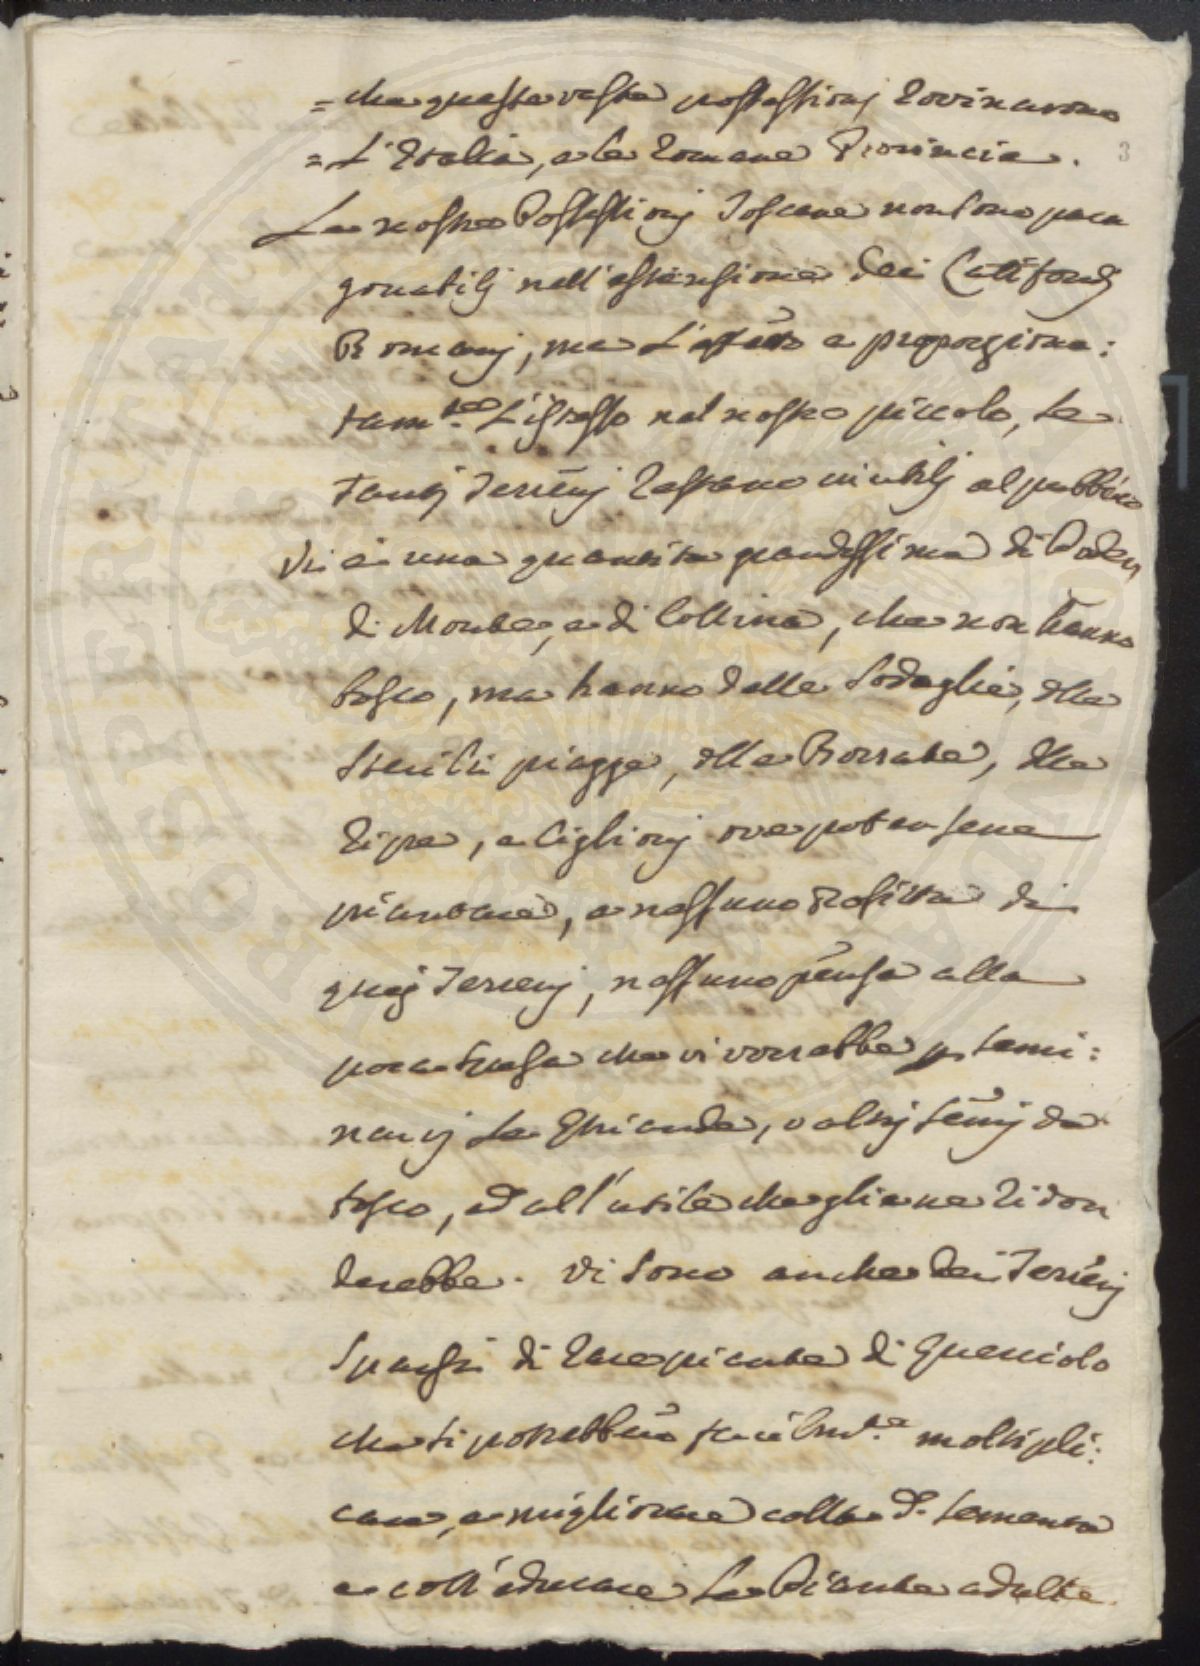 = che queste vaste possessioni rovinarono
= L'Italia, e le Romane Provincie.
3
Le nostre Possessionj Toscane non sono para
gonabilj nell'estensione dei Latifondj
Romanj, ma L'effetto è proporziona:
tam.te L'istesso nel nostro piccolo, se
tantj Terrenj restano inutilj al pubblico
Vi è una quantità grandissima di Poderj
di Monte, e di Collina, che non hanno
bosco, ma hanno delle Sodaglie, delle
sterili piagge, delle Borrate, delle
ripe, e Ciglionj ove potersene
piantare, e nessuno profitta di
quej Terrenj, nessuno pensa alla
poca spesa che vi vorrebbe p. semi:
narvj le Ghiande, o altrj semj da
bosco, ed all'utile che gliene ridon
derebbe. Vi sono anche dei Terrenj
sparsi di rare piante di Querciolo
che si potrebbero facilm.te moltipli:
care, e migliorare colla d.a sementa
e coll'educare le Piante adulte.
ROSPERITATI